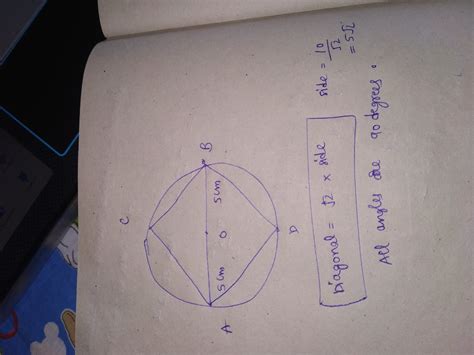 C
B
A
D
O
5cm
5cm
Diagonal = √2 × side
side = 10/√2
= 5√2
All angles are 90 degrees.